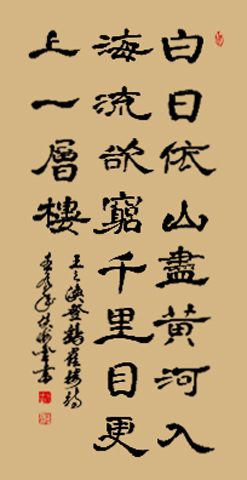 白日依山盡黃河入
海流欲窮千里目更
上一層樓
王之渙登鸛雀樓詩